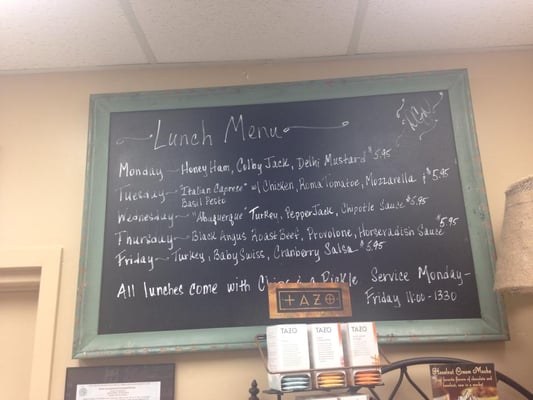 Lunch Menu
Monday - Honey Ham, Colby Jack, Delhi Mustard $5.95
Tuesday - "Italian Caprese" w/ Chicken, Roma Tomatoe, Mozzarella $5.95
Basil Pesto
Wednesday - "Albuquerque" Turkey, PepperJack, Chipotle Sauce $5.95
Thursday - Black Angus Roast Beef, Provolone, Horseradish Sauce $5.95
Friday - Turkey, Baby Swiss, Cranberry Salsa $5.95
All lunches come with Chips & a Pickle
Service Monday-
Friday 11:00-1330
TAZO
TAZO
TAZO
TAZO
Hazelnut Creme Mocha